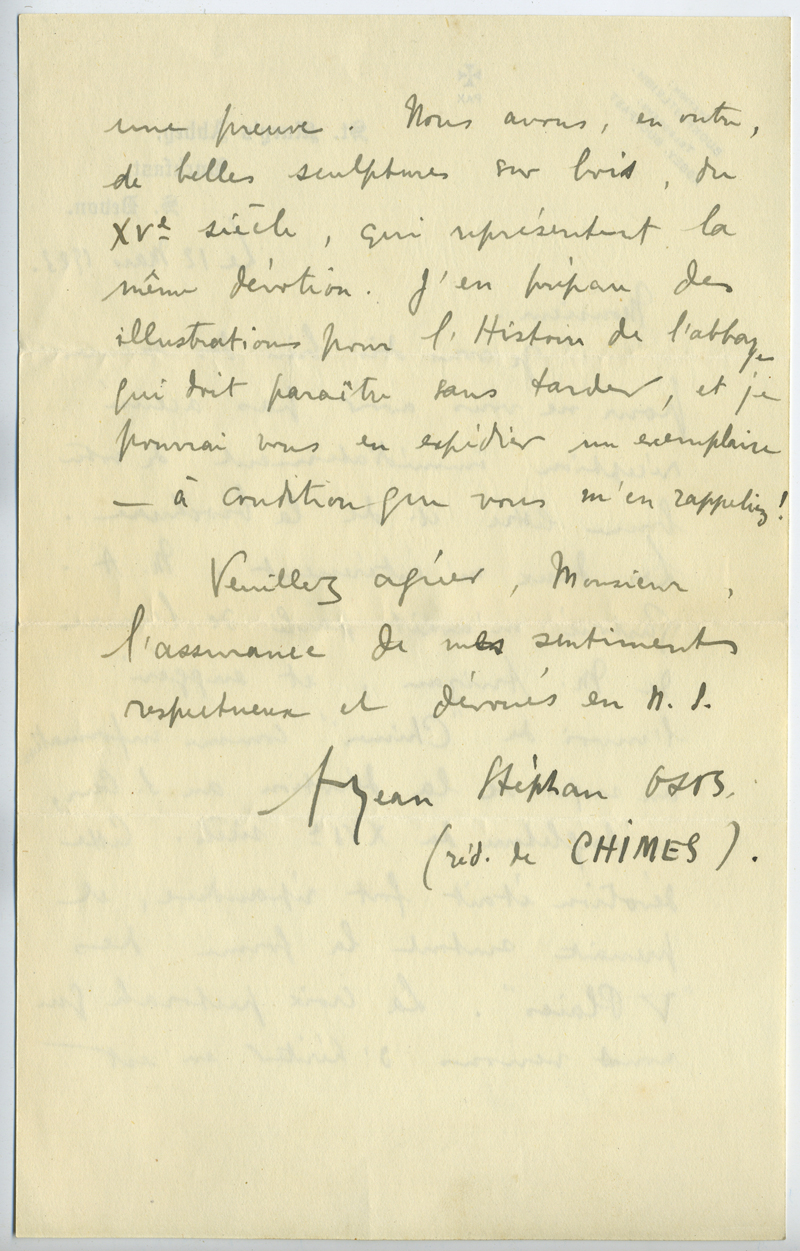 une preuve. Nous avons, en outre,
de belles sculptures sur bois, du
XVe siècle, qui représentent la
même dévotion. J'en prépare des
illustrations pour l'Histoire de l'abbaye
qui doit paraître sans tarder, et je
pourrai vous en expédier un exemplaire
— à condition que vous m'en rappeliez!
Veuillez agréer, Monsieur,
l'assurance de mes sentiments
respectueux et dévoués en N. S.
Jean Stéphan OSB.
(réd. de CHIMES).